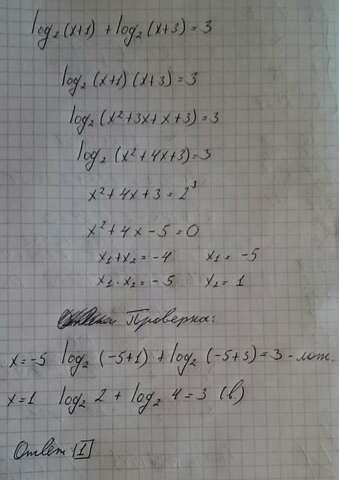 log₂(x+1) + log₂(x+3) = 3
log₂(x+1)(x+3) = 3
log₂(x²+3x+x+3) = 3
log₂(x²+4x+3) = 3
x²+4x+3 = 2³
x²+4x-5 = 0
x₁+x₂ = -4 x₁ = -5
x₁·x₂ = -5 x₂ = 1
Проверка:
x=-5 log₂(-5+1) + log₂(-5+3) = 3 - лож.
x=1 log₂ 2 + log₂ 4 = 3 (в)
Ответ 1